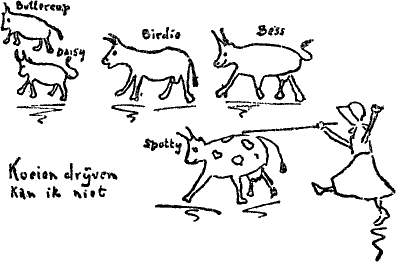 Buttercup
Daisy
Birdie
Bess
Spotty
Koeien drijven
kan ik niet